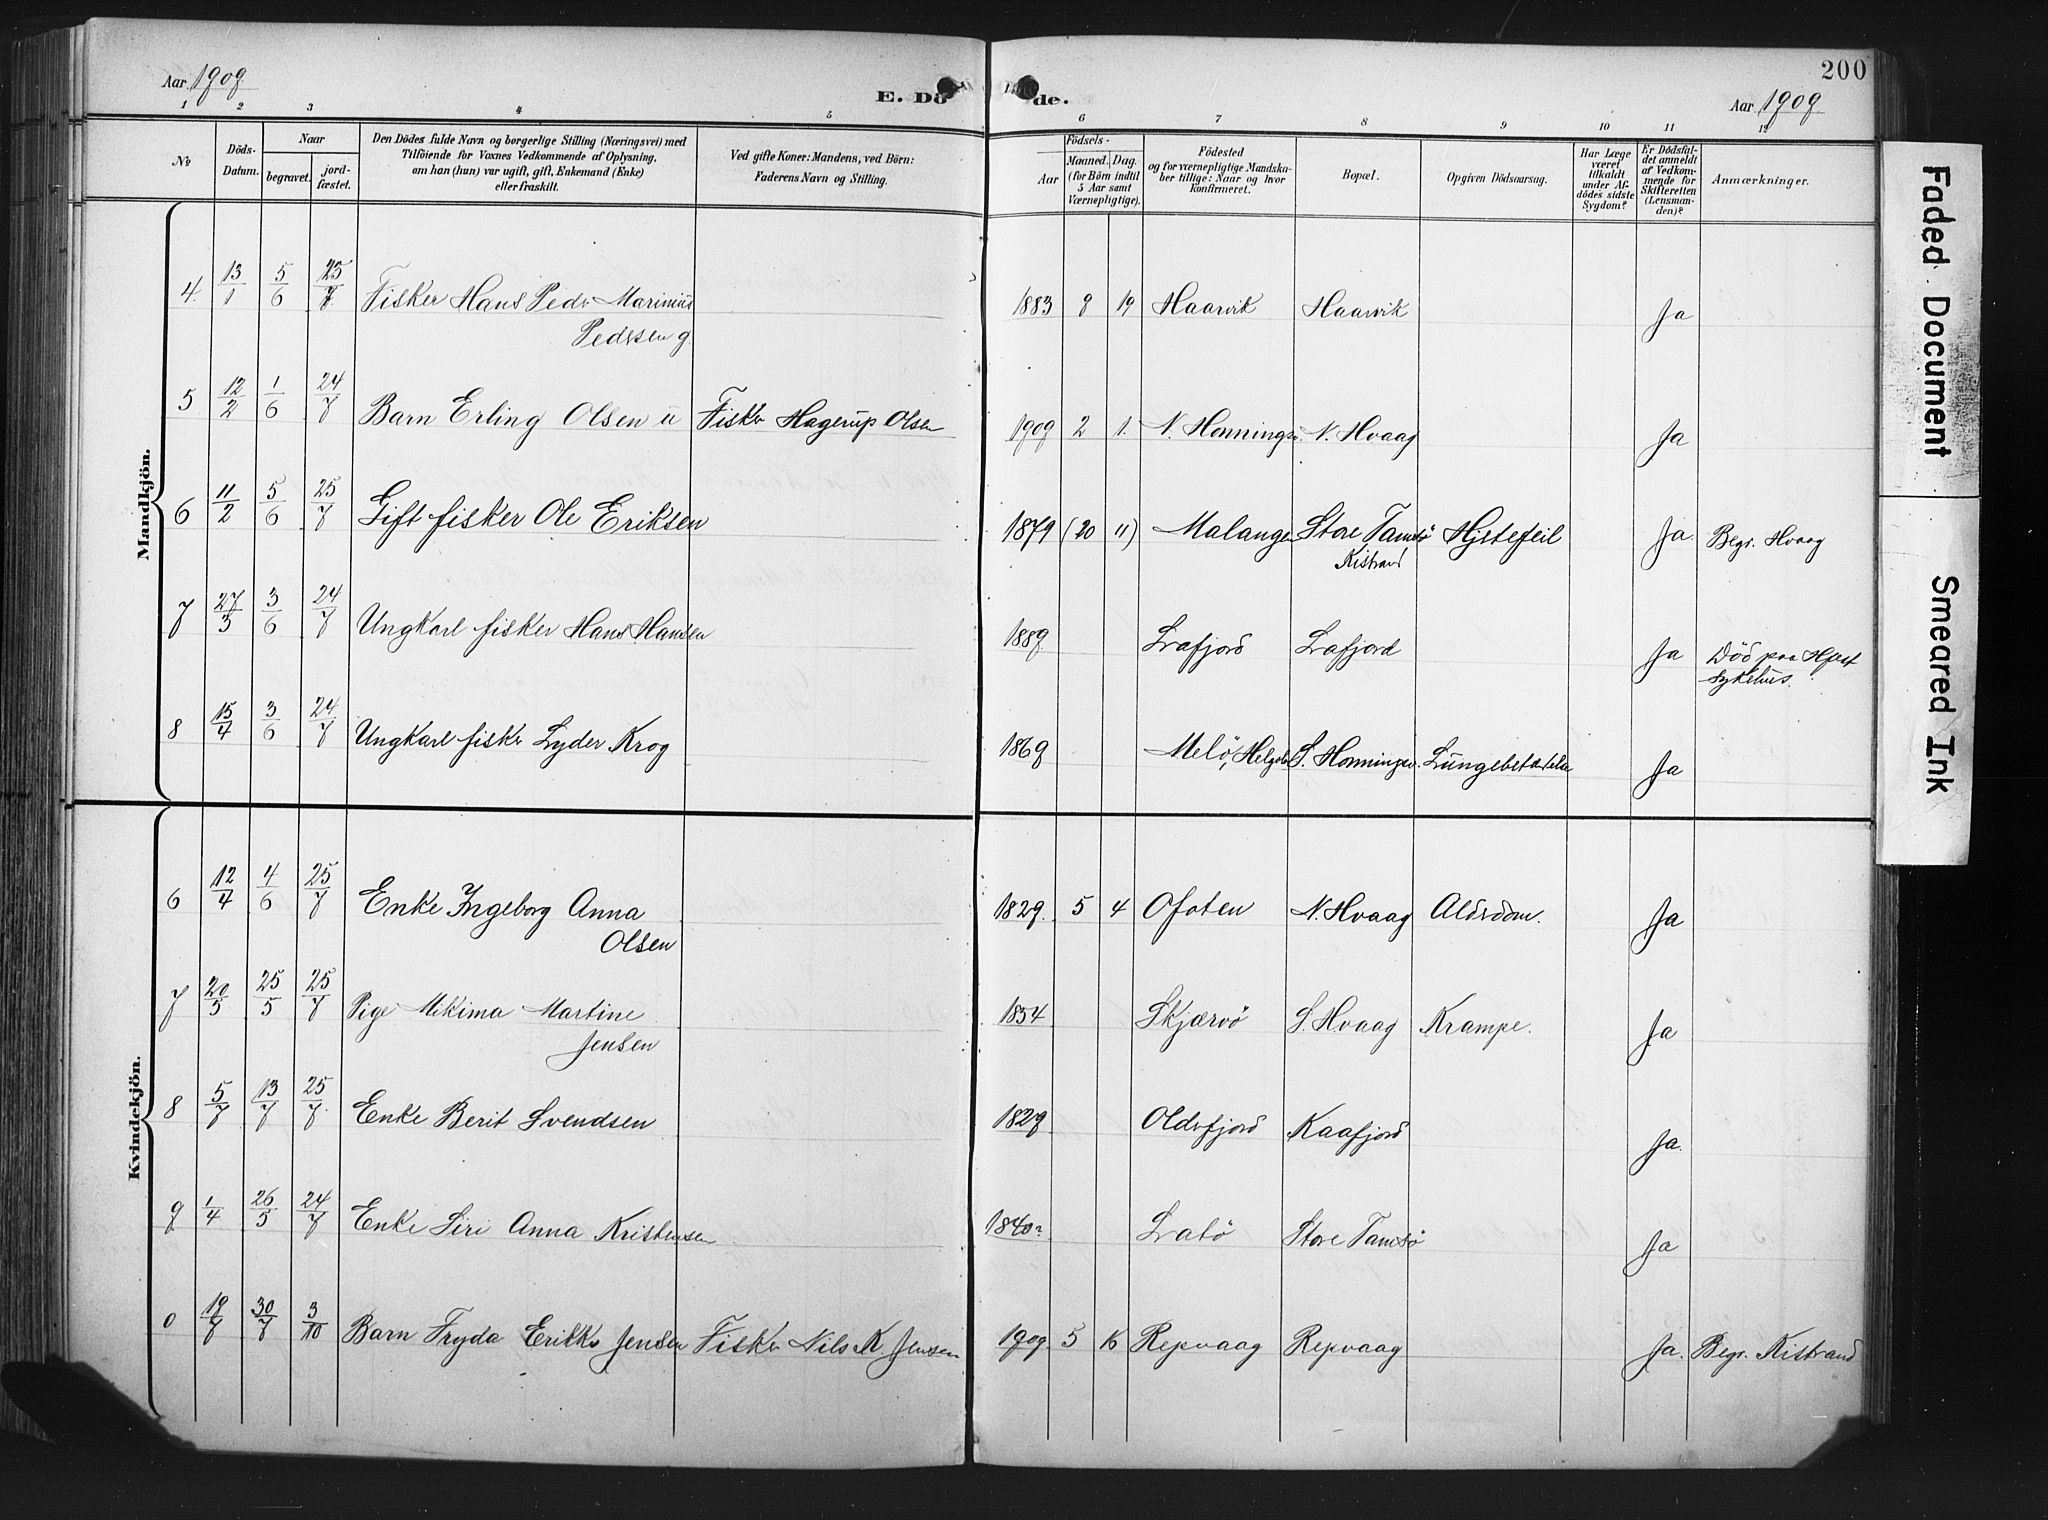 200
Aar 1909.
E. Dö de.
Aar 1909.
1 2 3 4 5 6 7 8 9 10 11 12
No
Döds-Datum.
Naar
begravet.
jord-fæstet.
Den Dödes fulde Navn og borgerlige Stilling (Næringsvei) med
Tilföiende for Voxnes Vedkommende af Oplysning,
om han (hun) var ugift, gift, Enkemand (Enke)
eller fraskilt.
Ved gifte Koner: Mandens, ved Börn:
Faderens Navn og Stilling.
Födsels-
Aar
Maaned. Dag.
(for Börn indtil
5 Aar samt
Værnepligtige).
Födested
og for værnepligtige Mandska-
ber tillige: Naar og hvor
konfirmeret.
Bopæl.
Opgiven Dödsaarsag.
Har Læge
været
tilkaldt
under Af-
dödes sidste
Sygdom?
Er Dödsfal-
det anmeldt
af Vedkom-
mende for
Skifteretten
(Lensman-
den)?
Anmærkninger.
Mandkjön.
4. 13/1 5/6 25/7 Fisker Hans Peder Marinius
Pedersen g. 1883 9 19 Haarvik Haarvik Ja
5 12/2 1/6 24/7 Barn Erling Olsen u Fisker Hagerup Olsen 1909 2 1. N. Honningsv. N. Hvaag Ja
6 11/2 5/6 25/7 Gift fisker Ole Eriksen 1879 (20 11) Malangen Store Tamsö
Kistrand Hjertefeil Ja. Begr. Hvaag
7 27/3 3/6 24/7 Ungkarl fisker Hans Hansen 1889 Lafjord Lafjord Ja Död paa Hfest
Sykehus.
8 15/4 3/6 24/7 Ungkarl fisker Lyder Krog 1869 Melö, Helgeld S. Honningsv. Lungebetændelse Ja
Kvindekjön.
6 12/4 4/6 25/7 Enke Ingeborg Anna
Olsen 1829. 5 4 Ofoten N. Hvaag Alderdom. Ja
7 20/5 25/5 25/7 Pige Mekima Martine
Jensen 1854 Skjærvö S. Hvaag Krampe. Ja
8 5/7 13/7 25/7 Enke Berit Svendsen 1829 Olderfjord Kaafjord Ja.
9 1/4 26/5 24/7 Enke Siri Anna Kristensen 1840? Store Tamsö Ja
0 19/7 30/7 3/10 Barn Fryda Erikka Jensen Fisker Nils K. Jensen 1909. 5 16 Repvaag Repvaag Ja. Begr. Kistrand
Faded Document
Smeared Ink